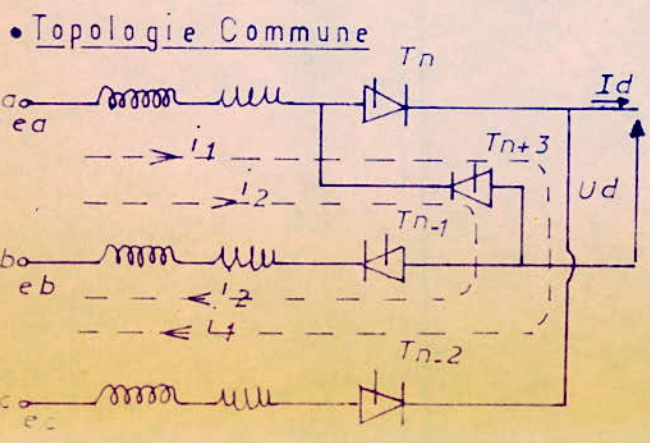 • Topologie Commune
Tn
Id
a
ea
i1
Tn+3
i2
Ud
Tn-1
b
eb
i2
i1
Tn-2
c
ec